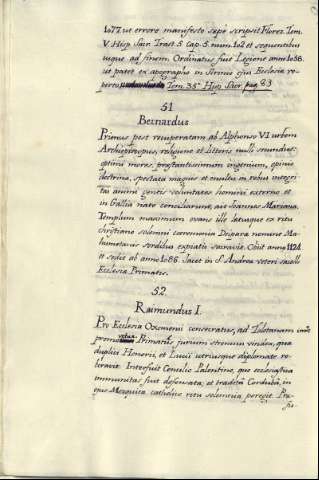 1077. ut errore manifesto sæpe scripsit Florez Tom.
V. Hisp. Sacr. Trat. 5. Cap. 5. num. 102 et sequentibus
usque ad finem. Ordinatus fuit Legione anno 1058.
ut patet ex apographo in Scrinio ejus Ecclesia re-
perto Tom. 35. Hisp. Sacr. pag. 83
51
Bernardus
Primus post recuperatam ab Alphonso VI urbem
Archiepiscopus, religione et litteris nulli secundus:
optimi mores, præstantissimum ingenium, opinio
doctrina, spectata magnis et multis in rebus integri-
tas animi gentis voluntates homini externo et
in Gallia nato conciliarunt, ait Joannes Mariana.
Templum maximum ovans ille lætusque ex ritu
christiano solemni cærremonia Deiparæ nomine Ma-
humetanis sordibus expiatis sacravit. Obiit anno 1124
et sedit ab anno 1086. Jacet in S. Andreæ veteri sacello
Ecclesia Primatis.
52
Raimundus I.
Pro Ecclesia Oxomensi consecratus, ad Toletanam
promotus Primatus jurium strenuus vindex, quæ
duplici Honorii, et Lucii utriusque diplomate ro-
boravit. Interfuit Concilio Palentino, quo ecclesiastica
immunitas fuit defensata, et tradita Corduba, in
ejus Mezquita catholico ritu solemnia peregit. Præ-